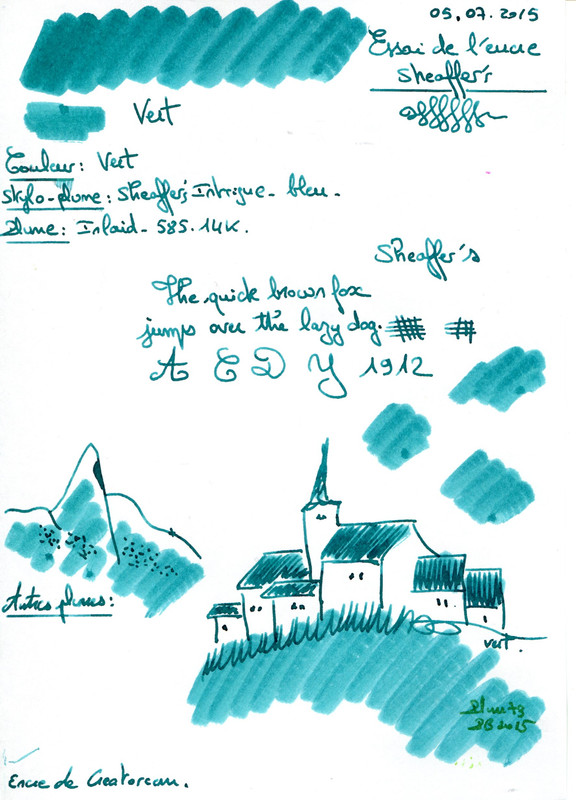 05.07.2015
Essai de l'encre
Sheaffer's
Vert
Couleur: Vert
Stylo-plume: Sheaffer's Intrigue - bleu -
Plume: Inlaid - 585. 14K.
Sheaffer's
The quick brown fox
jumps over the lazy dog.
A E D Y 1912
Autres plumes:
vert.
2015
Encre de